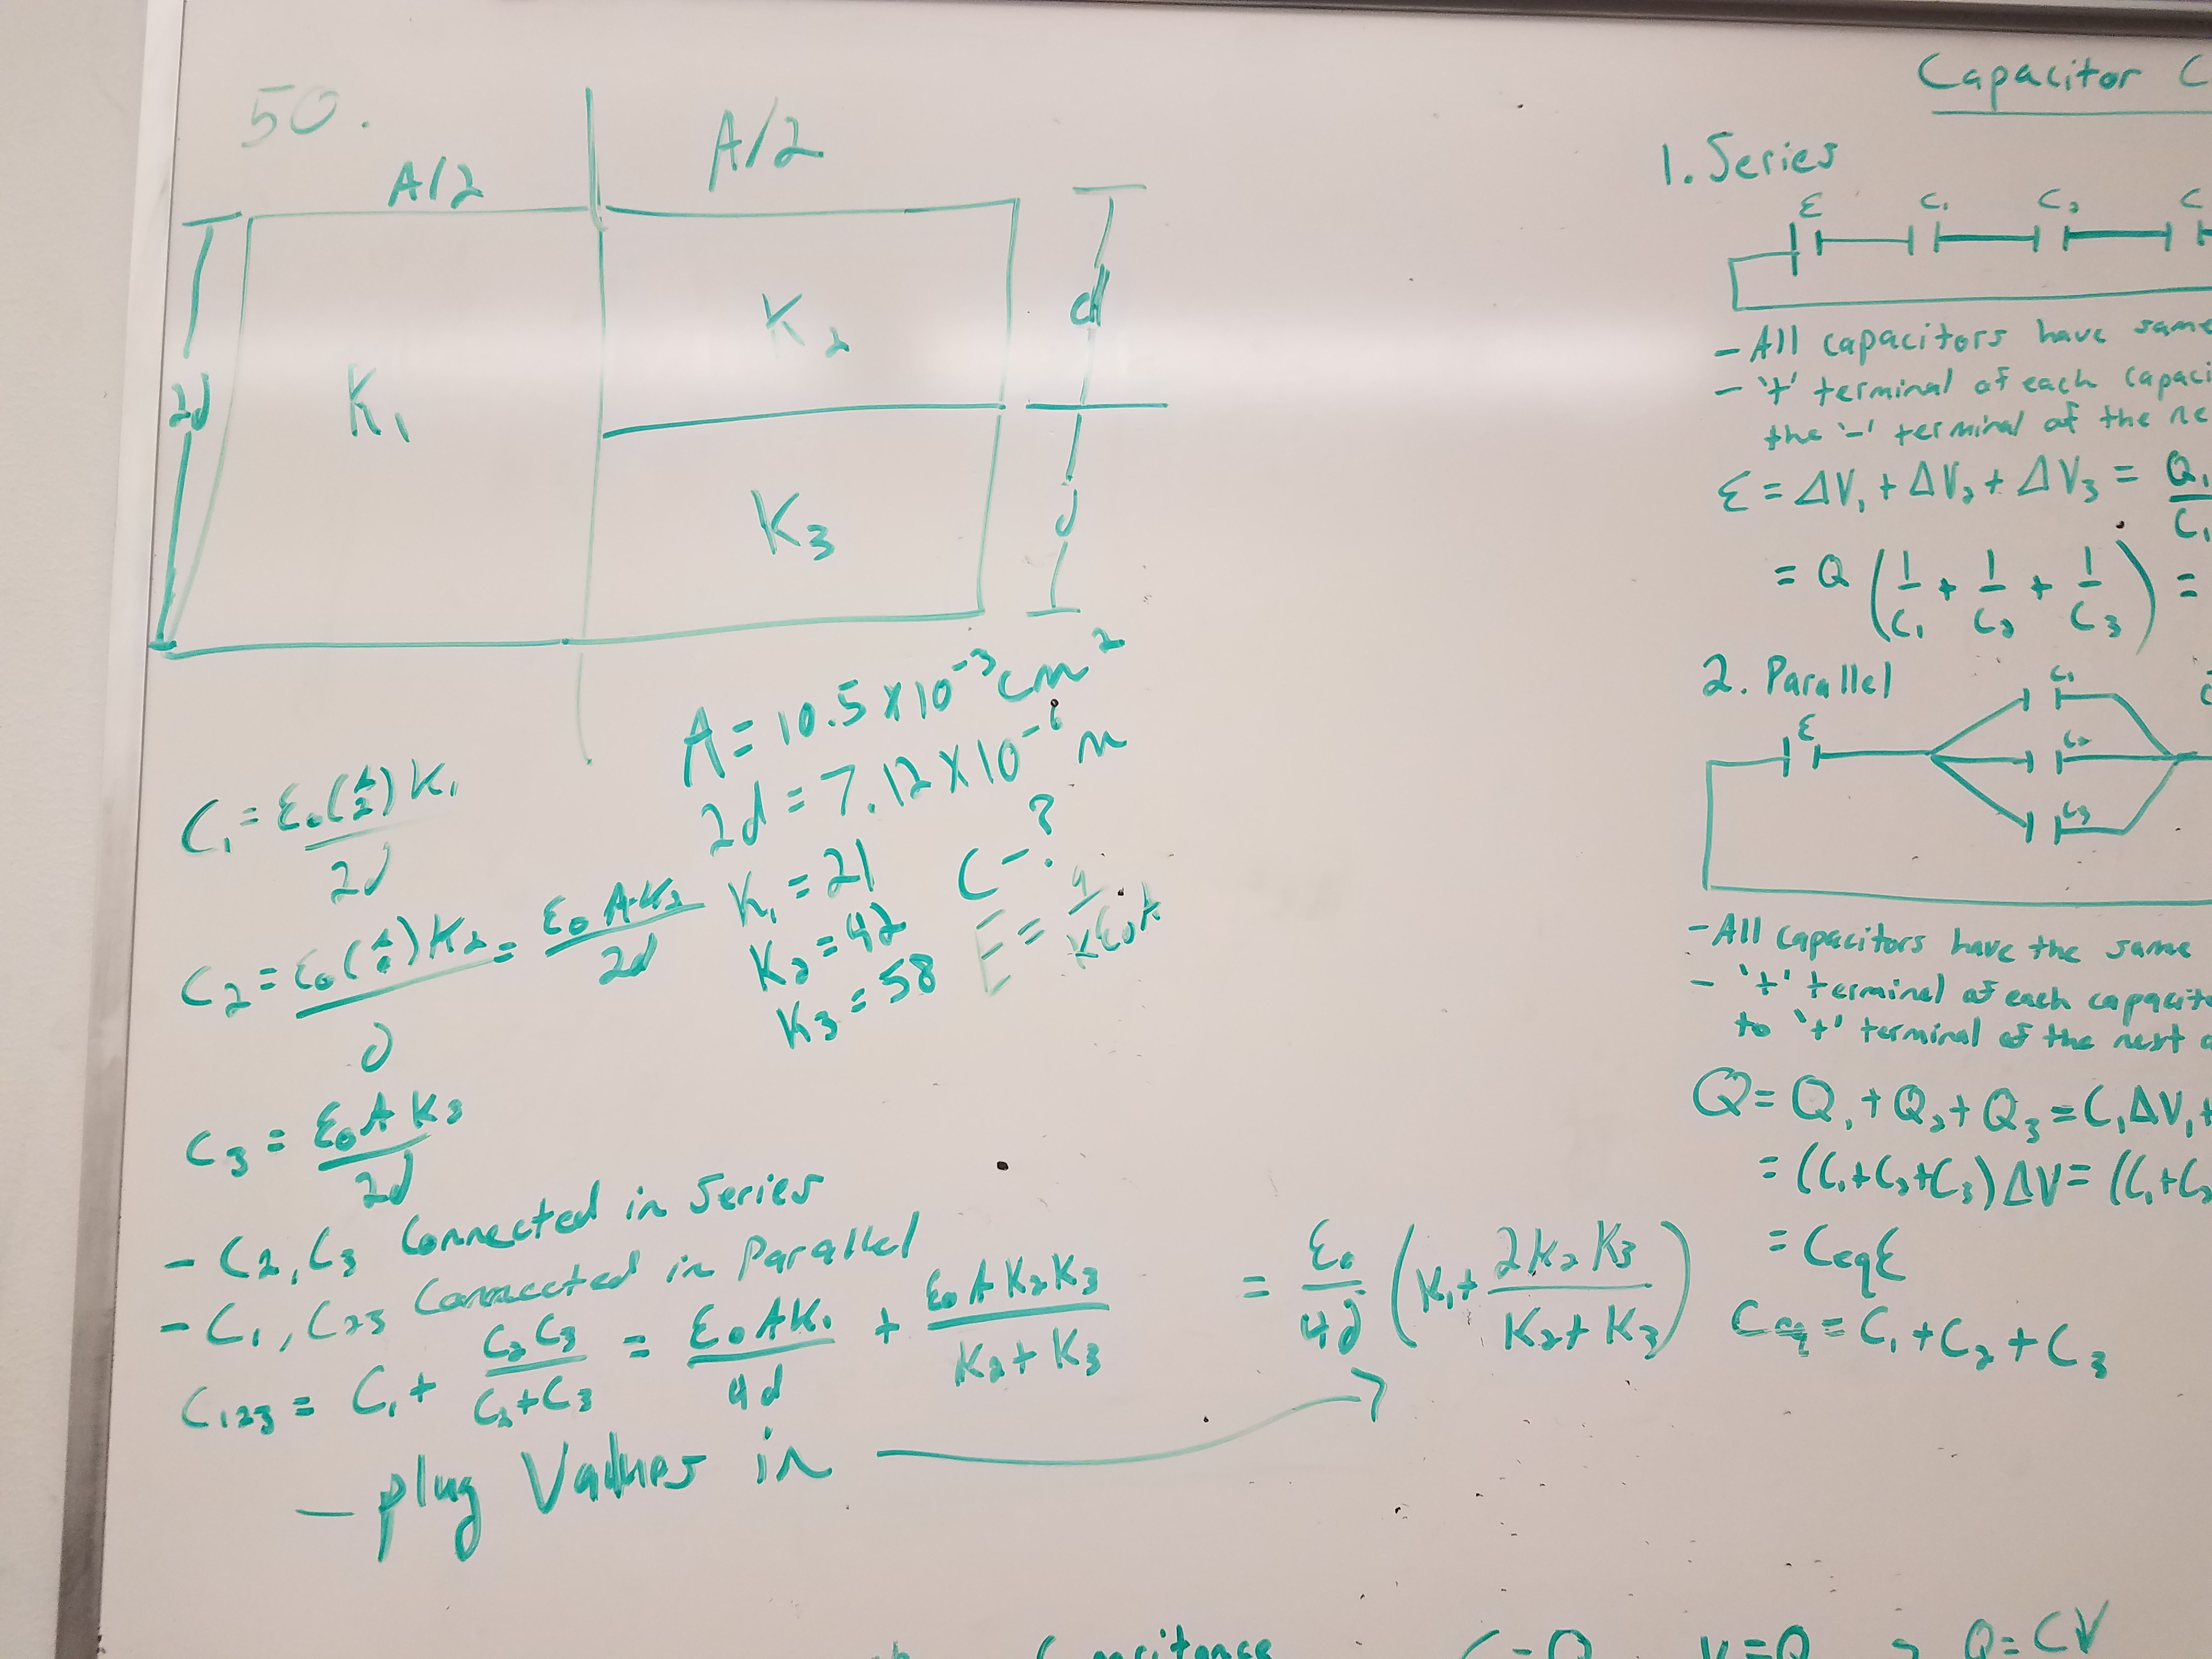 50.
A/2
A/2
2d
K₁
K₂
K₃
d
d
A = 10.5 x 10⁻³ cm²
2d = 7.12 x 10⁻⁶ m
K₁ = 21
K₂ = 42
K₃ = 58
C - ?
E = q / κε₀A
C₁ = ε₀(A/2)K₁ / 2d
C₂ = ε₀(A/2)K₂ / d = ε₀AK₂ / 2d
C₃ = ε₀AK₃ / 2d
- C₂, C₃ Connected in Series
- C₁, C₂₃ Connected in Parallel
C₁₂₃ = C₁ + C₂C₃ / C₂+C₃ = ε₀AK₁ / 4d + ε₀AK₂K₃ / K₂+K₃
= ε₀ / 4d (K₁ + 2K₂K₃ / K₂+K₃)
- plug Values in
Capacitor C
1. Series
ε C₁ C₂ C
- All capacitors have same
- '+' terminal of each capaci
the '-' terminal of the ne
ε = ΔV₁ + ΔV₂ + ΔV₃ = Q₁ / C₁
= Q (1/C₁ + 1/C₂ + 1/C₃) =
2. Parallel
ε
C₁
C₂
C₃
- All capacitors have the same
- '+' terminal of each capacito
to '+' terminal of the next
Q = Q₁ + Q₂ + Q₃ = C₁ΔV₁ +
= (C₁+C₂+C₃)ΔV = (C₁+C₂
= Ceqε
Ceq = C₁ + C₂ + C₃
Q = CV